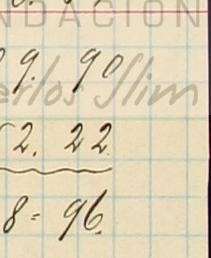 NDACIÓN
9. 90
Carlos Slim
2. 22
8 = 96.